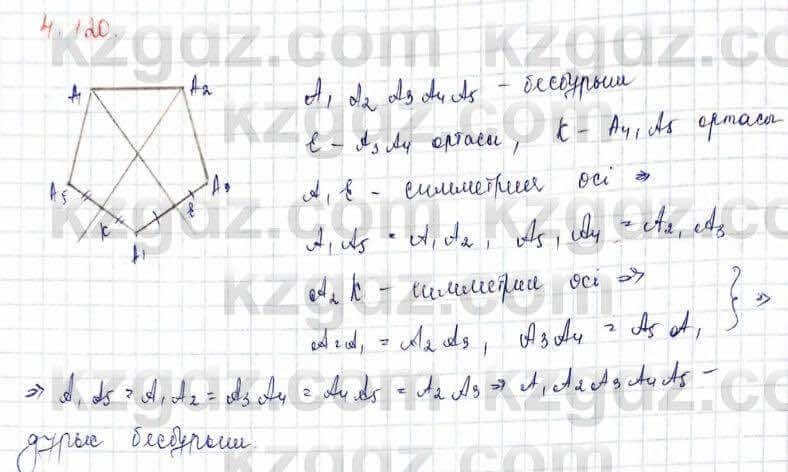 4.120.
A₁ A₂
A₅ A₃
K E
A₁
A₁ A₂ A₃ A₄ A₅ – бесбұрыш
E – A₃ A₄ ортасы, K – A₄, A₅ ортасы
A₁ E – симметрия осі ⇒
A₁ A₅ = A₁ A₂, A₅, A₄ = A₂, A₃
A₂ K – симметрия осі ⇒
A₂A₁ = A₂ A₃, A₃ A₄ = A₅ A₁ } ⇒
⇒ A₁ A₅ = A₁ A₂ = A₃ A₄ = A₄ A₅ = A₂ A₃ ⇒ A₁ A₂ A₃ A₄ A₅ –
дұрыс бесбұрыш.
kzgdz.com